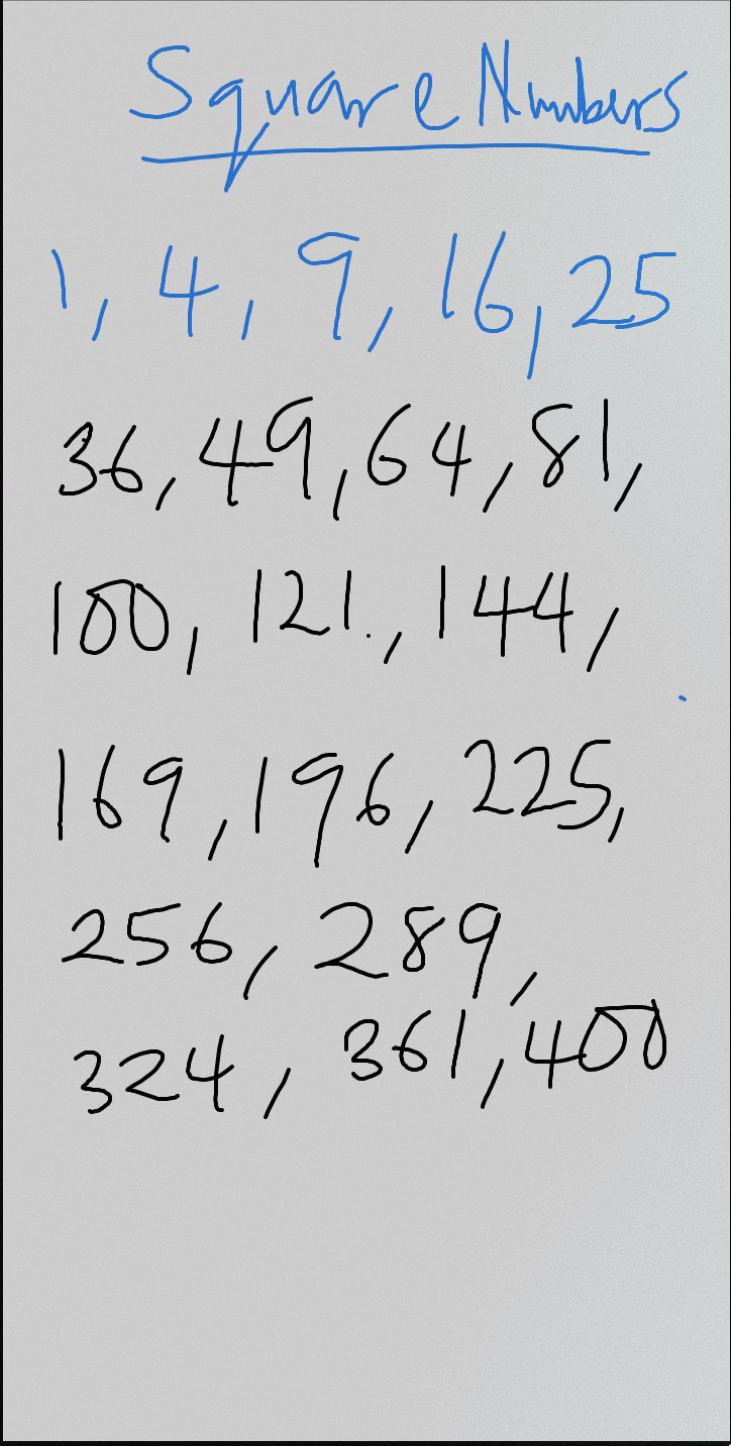 Square Numbers
1, 4, 9, 16, 25
36, 49, 64, 81,
100, 121., 144,
169, 196, 225,
256, 289,
324, 361, 400